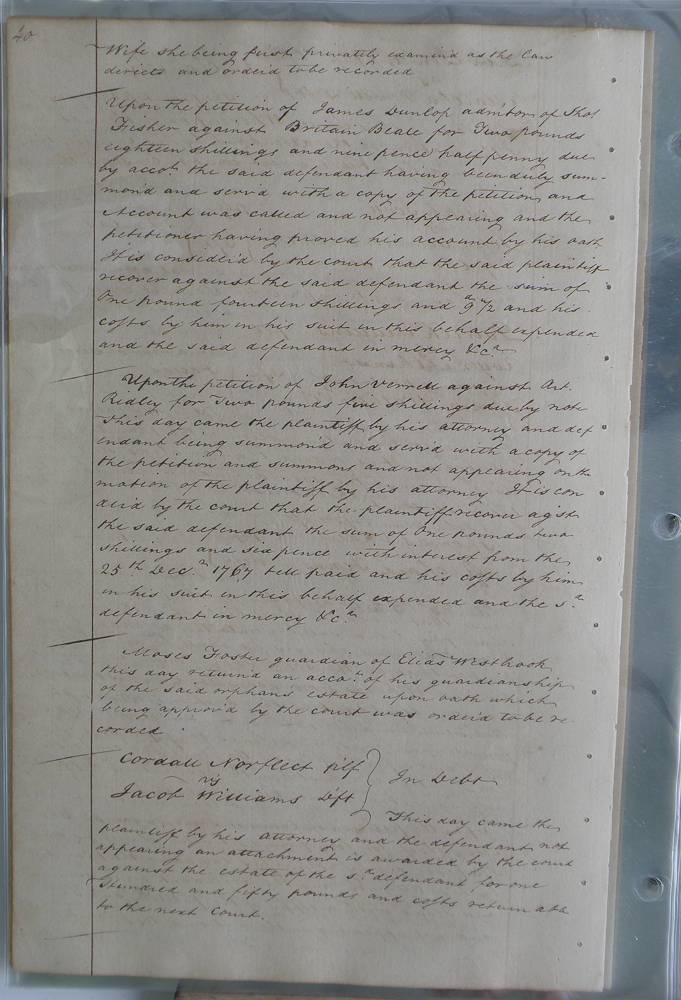 40
Wife she being first privately examind as the Law
directs and orderd to be recorded
Upon the petition of James Dunlop admtor of Thos
Fisher against Britain Beale for Two pounds
eighteen shillings and nine pence half penny due
by accot. the said defendant having been duly sum-
mond and servd with a copy of the petition and
Account was called and not appearing and the
petitioner having proved his account by his oath
It is considerd by the court that the said plaintiff
recover against the said defendant the sum of
One pound fourteen shillings and 9 1/2 and his
costs by him in his suit in this behalf expended
and the said defendant in mercy &ca
Upon the petition of John Verrell against Art.
Ridley for Two pounds five shillings due by note
This day came the plaintiff by his attorney and def
endant being summond and servd with a copy of
the petition and summons and not appearing on the
motion of the plaintiff by his attorney It is con
derd by the court that the plaintiff recover agst
the said defendant the sum of One pounds two
shillings and six pence with interest from the
25th Decr. 1767 till paid and his costs by him
in his suit in this behalf expended and the sd.
defendant in mercy &ca
Moses Foster guardian of Elias Westbrook
this day returnd an accot. of his guardianship
of the said orphans estate upon oath which
being approvd by the court was orderd to be re
corded
Cordall Norfleet plf
vs
In Debt
Jacob Williams Dft
This day came the
plaintiff by his attorney and the defendant not
appearing an attachment is awarded by the court
against the estate of the sd. defendant for one
Hundred and fifty pounds and costs return able
to the next Court.